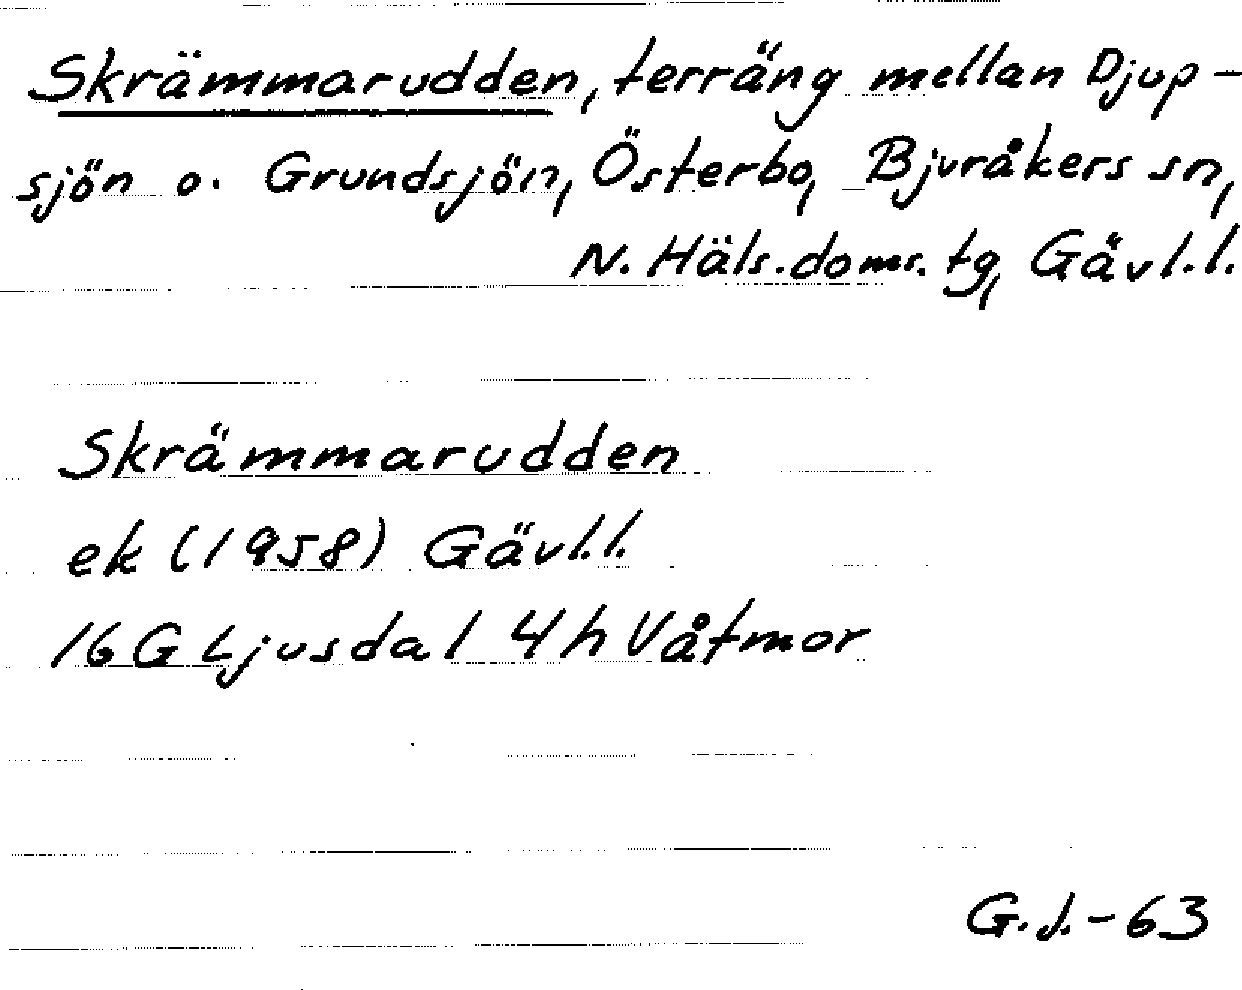 Skrämmarudden, terräng mellan Djup-
sjön o. Grundsjön, Österbo, Bjuråkers sn,
N. Häls. doms. tg, Gävl. l.
Skrämmarudden
ek (1958) Gävl. l.
16 G Ljusdal 4 h Våtmor
G. J. - 63